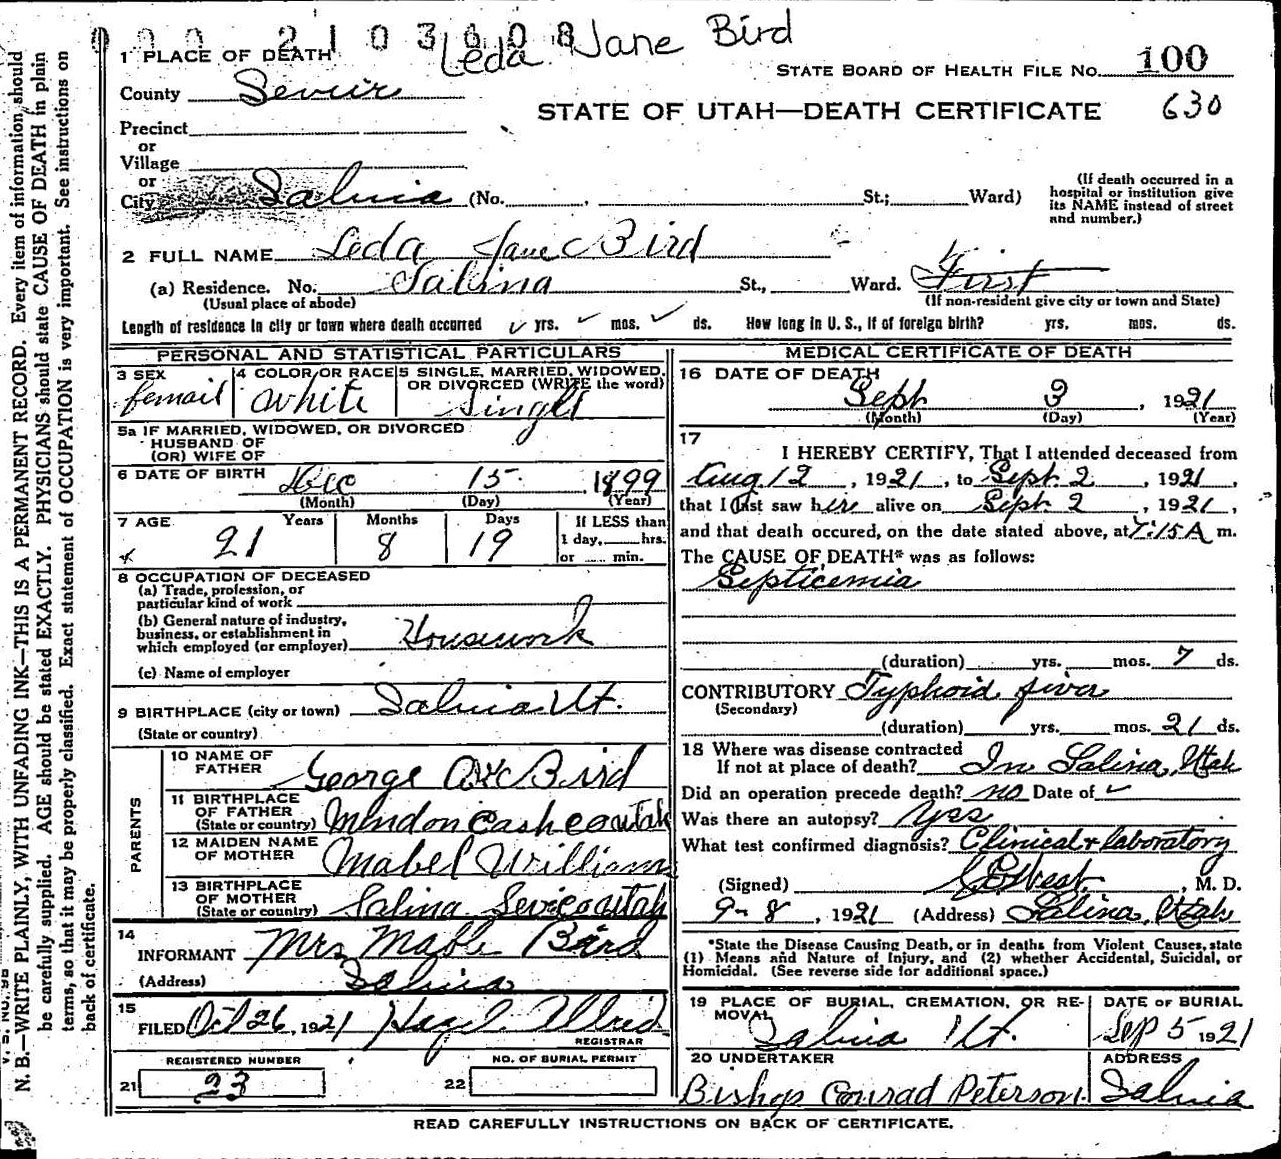 0 0 0 2 1 0 3 6 0 8
Leda Jane Bird
1 PLACE OF DEATH
STATE BOARD OF HEALTH FILE No. 100
County Sevier
STATE OF UTAH—DEATH CERTIFICATE 630
Precinct
or
Village
or
City Salina (No. , St.; Ward)
(If death occurred in a hospital or institution give its NAME instead of street and number.)
2 FULL NAME Leda Jane Bird
(a) Residence. No. Salina St., Ward. First
(Usual place of abode) (If non-resident give city or town and State)
Length of residence in city or town where death occurred ✓ yrs. ✓ mos. ✓ ds. How long in U. S., if of foreign birth? yrs. mos. ds.
PERSONAL AND STATISTICAL PARTICULARS
3 SEX femail
4 COLOR OR RACE white
5 SINGLE, MARRIED, WIDOWED, OR DIVORCED (WRITE the word) Single
5a IF MARRIED, WIDOWED, OR DIVORCED
HUSBAND OF
(OR) WIFE OF
6 DATE OF BIRTH Dec 15 , 1899
(Month) (Day) (Year)
7 AGE Years Months Days If LESS than
21 8 19 1 day, hrs.
or min.
8 OCCUPATION OF DECEASED
(a) Trade, profession, or
particular kind of work
(b) General nature of industry,
business, or establishment in
which employed (or employer) Housework
(c) Name of employer
9 BIRTHPLACE (city or town) Salina Ut.
(State or country)
PARENTS
10 NAME OF FATHER George Bird
11 BIRTHPLACE OF FATHER (State or country) Mendon Cash co utah
12 MAIDEN NAME OF MOTHER Mabel Williams
13 BIRTHPLACE OF MOTHER (State or country) Salina Sevier co utah
14
INFORMANT Mrs Mable Bird
(Address) Salina
15
FILED Oct 26, 1921 Hazel Allred
REGISTRAR
REGISTERED NUMBER NO. OF BURIAL PERMIT
21 23 22
MEDICAL CERTIFICATE OF DEATH
16 DATE OF DEATH
Sept 3 , 1921
(Month) (Day) (Year)
17
I HEREBY CERTIFY, That I attended deceased from
Aug. 12 , 1921 , to Sept. 2 , 1921 ,
that I last saw her alive on Sept 2 , 1921 ,
and that death occured, on the date stated above, at 7:15 A m.
The CAUSE OF DEATH* was as follows:
Septicemia
(duration) yrs. mos. 7 ds.
CONTRIBUTORY Typhoid fiver
(Secondary)
(duration) yrs. mos. 21 ds.
18 Where was disease contracted
If not at place of death? In Salina, Utah
Did an operation precede death? no Date of ✓
Was there an autopsy? Yes
What test confirmed diagnosis? Clinical + laboratory
(Signed) West , M. D.
9-8 , 1921 (Address) Salina, Utah
*State the Disease Causing Death, or in deaths from Violent Causes, state
(1) Means and Nature of Injury, and (2) whether Accidental, Suicidal, or
Homicidal. (See reverse side for additional space.)
19 PLACE OF BURIAL, CREMATION, OR REMOVAL DATE OF BURIAL
Salina Ut. Sep 5 1921
20 UNDERTAKER ADDRESS
Bishop Conrad Peterson. Salina
READ CAREFULLY INSTRUCTIONS ON BACK OF CERTIFICATE.
N. B.—WRITE PLAINLY, WITH UNFADING INK—THIS IS A PERMANENT RECORD. Every item of information should
be carefully supplied. AGE should be stated EXACTLY. PHYSICIANS should state CAUSE OF DEATH in plain
terms, so that it may be properly classified. Exact statement of OCCUPATION is very important. See instructions on
back of certificate.